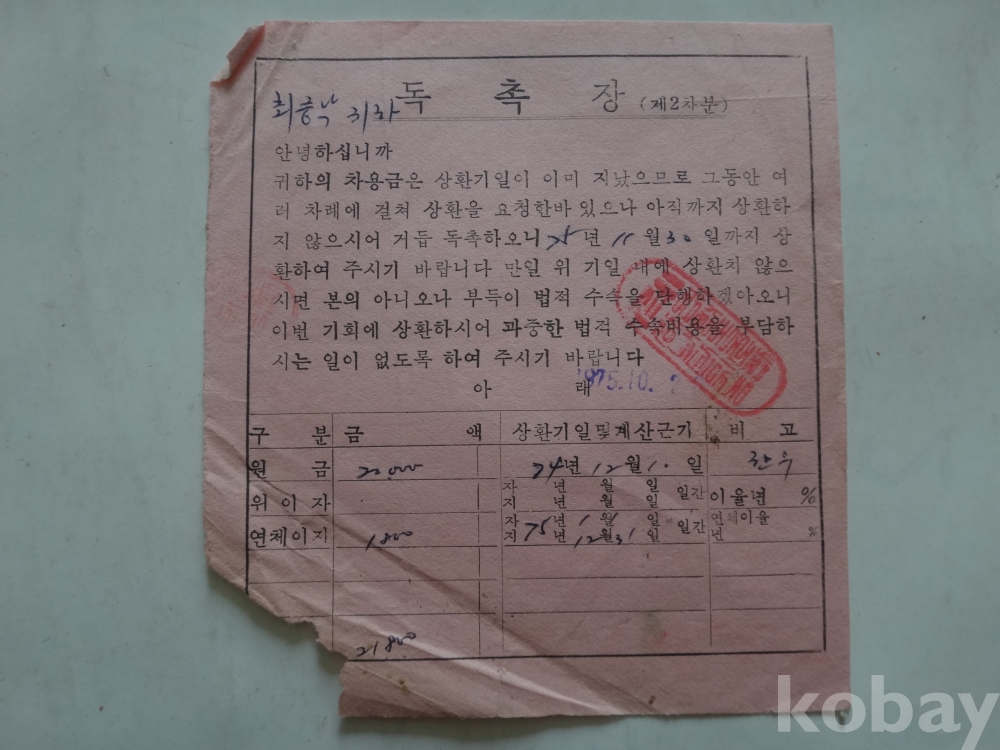 독 촉 장 (제2차분)
귀하
안녕하십니까
귀하의 차용금은 상환기일이 이미 지났으므로 그동안 여
러 차례에 걸쳐 상환을 요청한바 있으나 아직까지 상환하
지 않으시어 거듭 독촉하오니 75년 11월 30일까지 상
환하여 주시기 바랍니다 만일 위 기일 내에 상환치 않으
시면 본의 아니오나 부득이 법적 수속을 단행하겠아오니
이번 기회에 상환하시어 과중한 법적 수속비용을 부담하
시는 일이 없도록 하여 주시기 바랍니다
아 래
1975.10.
구 분 금 액 상환기일및계산근기 비 고
원 금 20,000 74년 12월 10일 한우
위이자 자 년 월 일 일간 이율년 %
지 년 월 일
연체이지 1800 자 75년 1월 1일 일간 연체이율
지 75년 12월 31일 년 %
21800
kobay